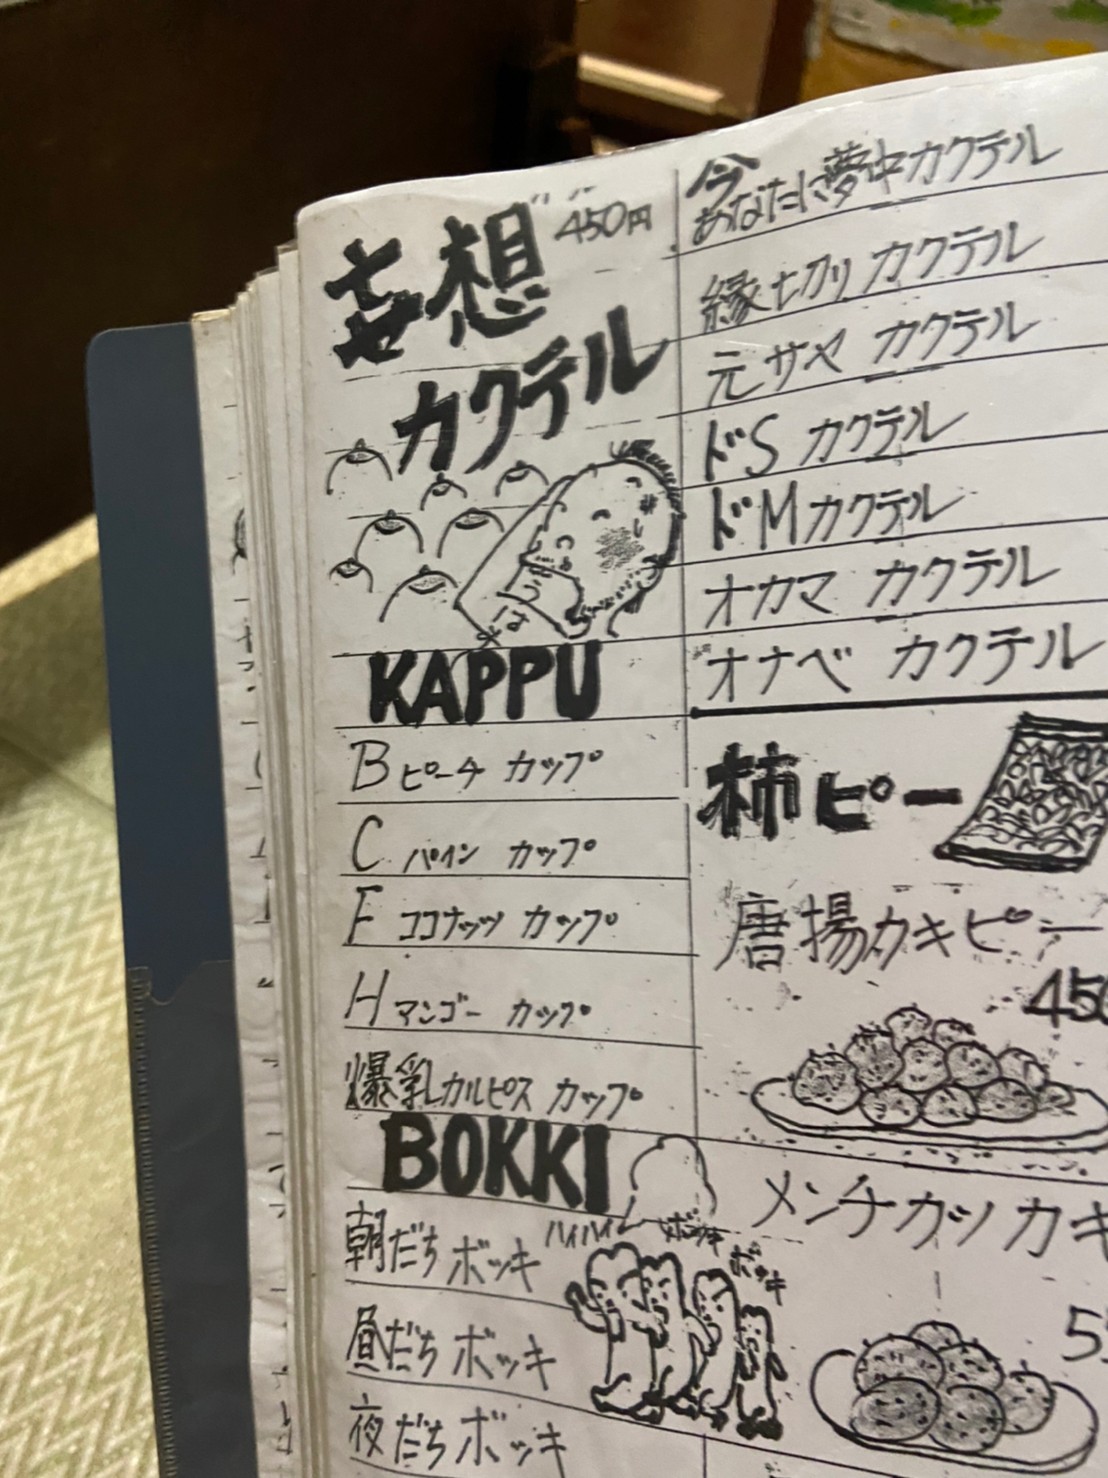 妄想
カクテル
450円
KAPPU
B ピーチ カップ
C パイン カップ
F ココナッツ カップ
H マンゴー カップ
爆乳カルピス カップ
BOKKI
朝だち ボッキ
昼だち ボッキ
夜だち ボッキ
ハイハイ
ボッキ
ボッキ
今
あなたに夢中カクテル
縁切り カクテル
元サヤ カクテル
ドS カクテル
ドM カクテル
オカマ カクテル
オナベ カクテル
柿ピー
唐揚カキピー
450
メンチカツ カキ